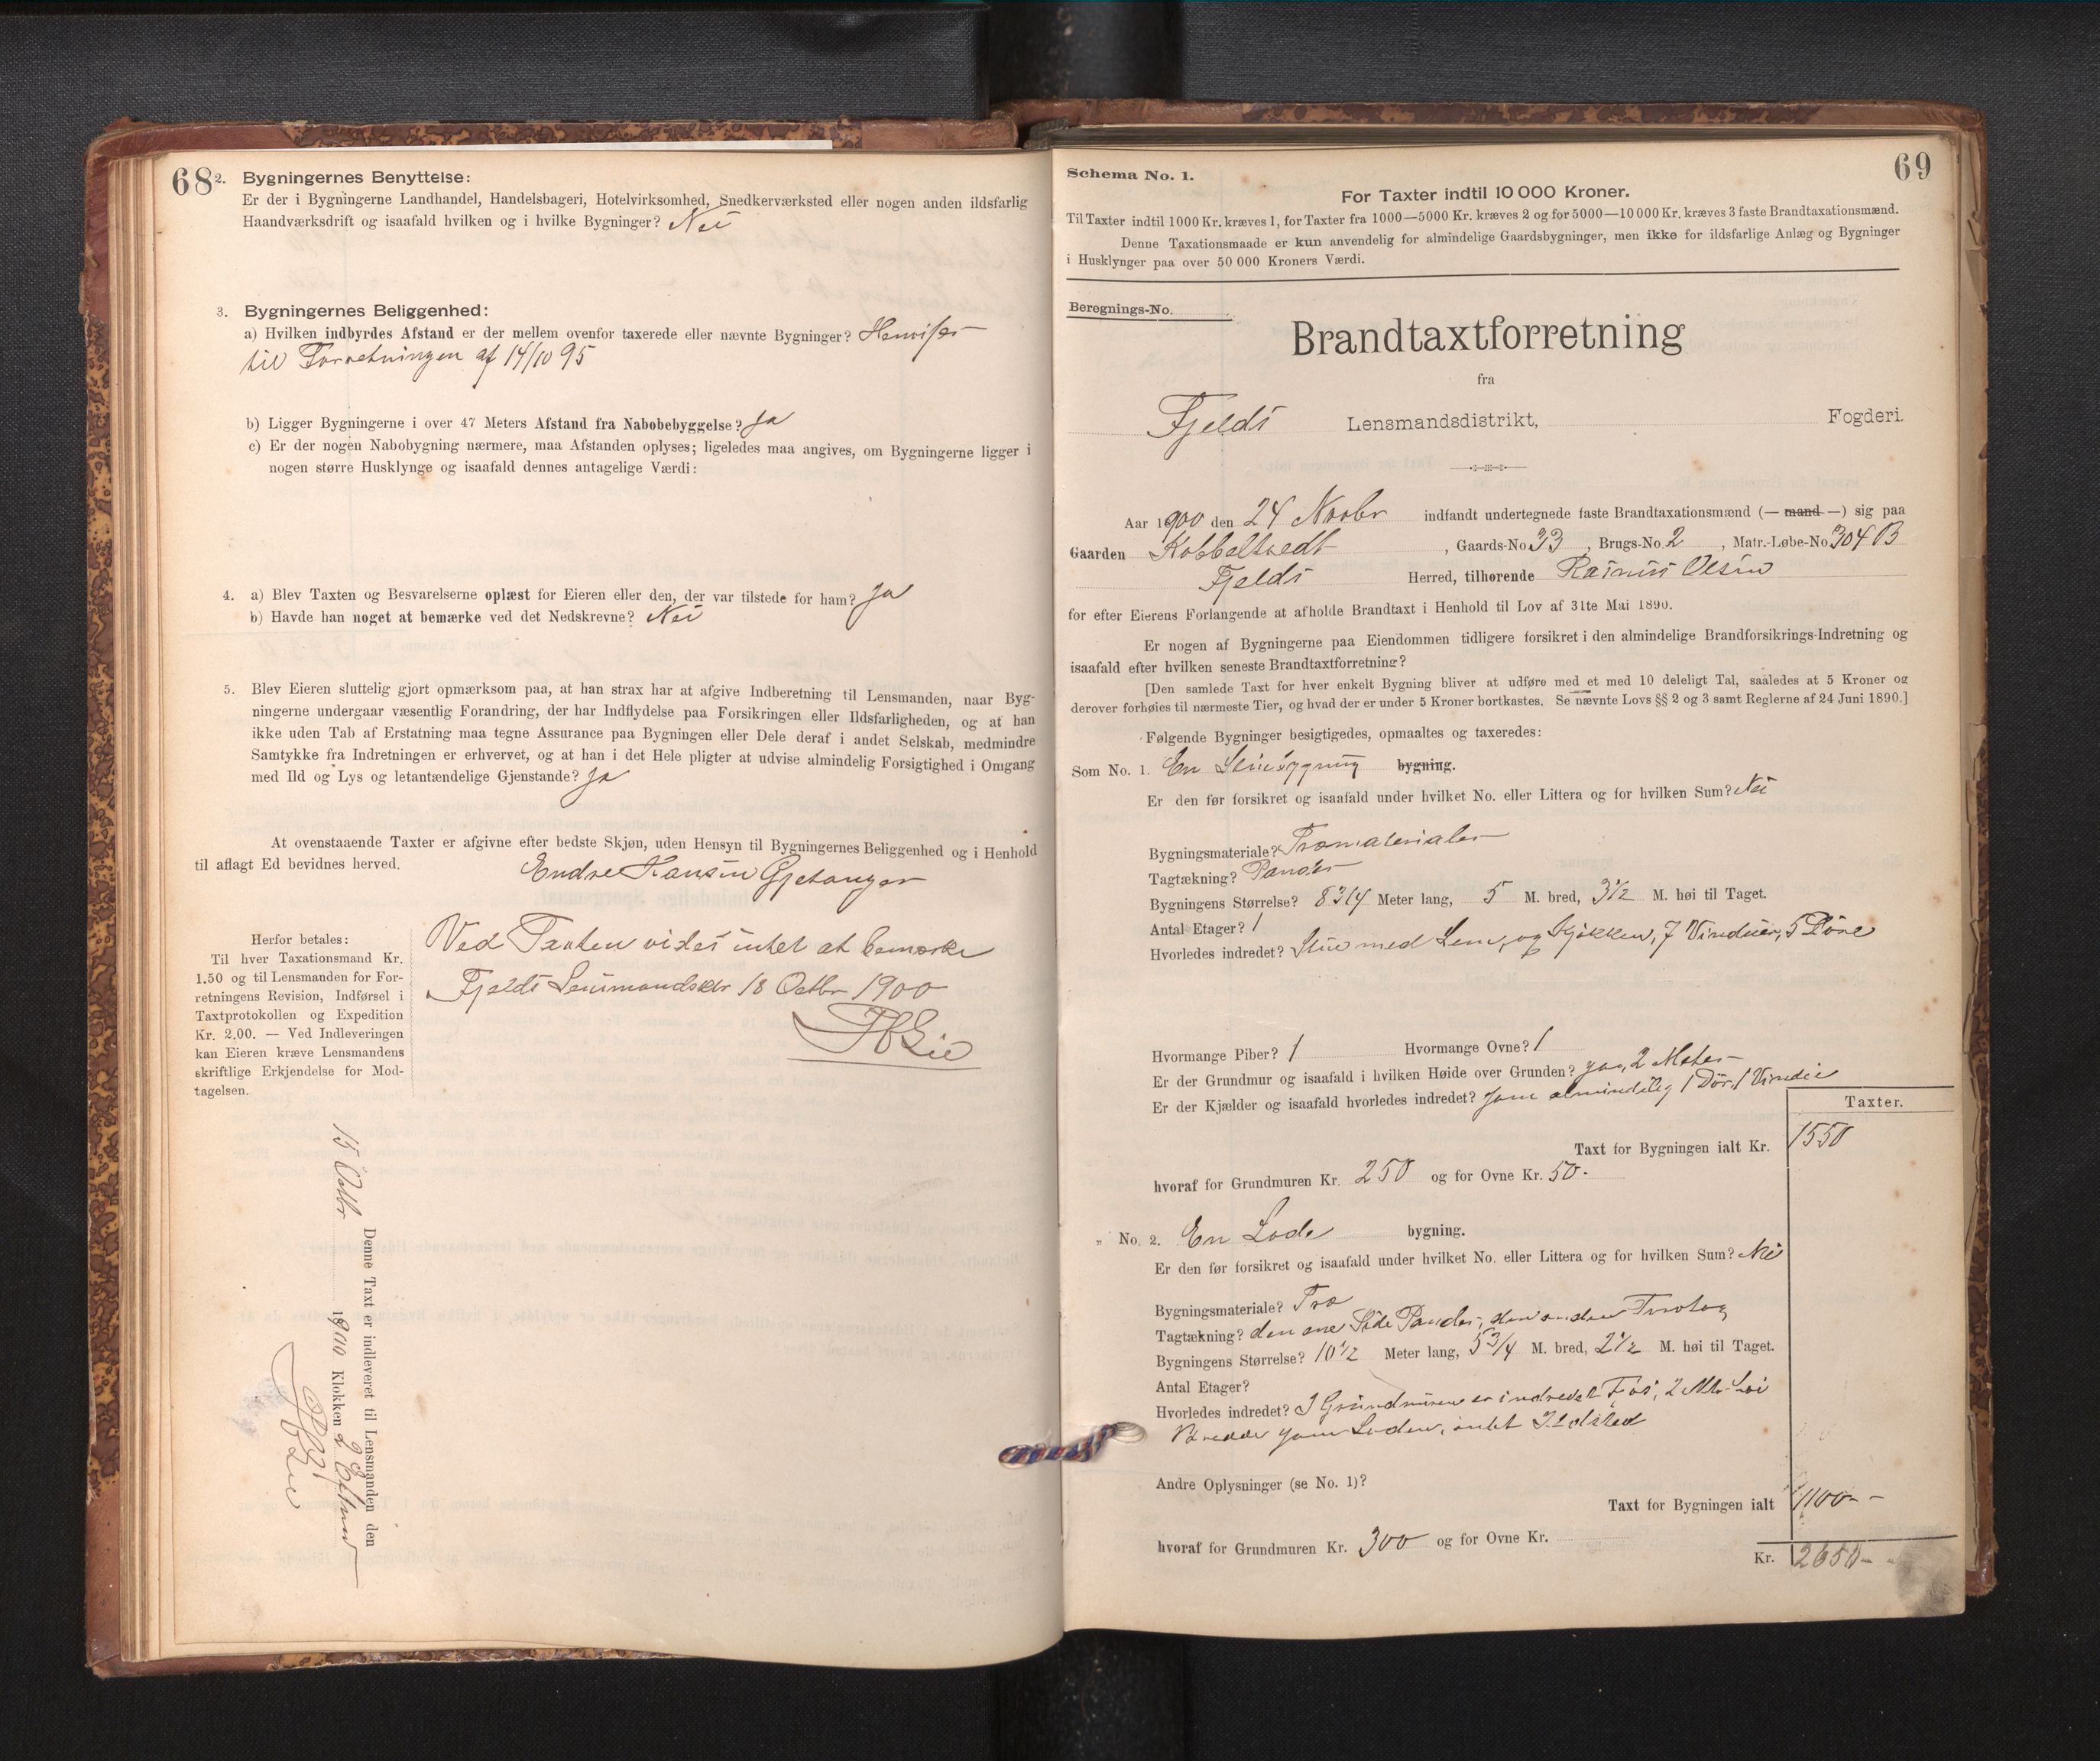 68
2. Bygningernes Benyttelse:
Er der i Bygningerne Landhandel, Handelsbageri, Hotelvirksomhed, Snedkerværksted eller nogen anden ildsfarlig
Haandværksdrift og isaafald hvilken og i hvilke Bygninger? Nei
3. Bygningernes Beliggenhed:
a) Hvilken indbyrdes Afstand er der mellem ovenfor taxerede eller nævnte Bygninger? Henvises
til Forretningen af 14/10 95
b) Ligger Bygningerne i over 47 Meters Afstand fra Nabobebyggelse? Ja
c) Er der nogen Nabobygning nærmere, maa Afstanden oplyses; ligeledes maa angives, om Bygningerne ligger i
nogen større Husklynge og isaafald dennes antagelige Værdi:
4. a) Blev Taxten og Besvarelserne oplæst for Eieren eller den, der var tilstede for ham? Ja
b) Havde han noget at bemærke ved det Nedskrevne? Nei
5. Blev Eieren sluttelig gjort opmærksom paa, at han strax har at afgive Indberetning til Lensmanden, naar Byg-
ningerne undergaar væsentlig Forandring, der har Indflydelse paa Forsikringen eller Ildsfarligheden, og at han
ikke uden Tab af Erstatning maa tegne Assurance paa Bygningen eller Dele deraf i andet Selskab, medmindre
Samtykke fra Indretningen er erhvervet, og at han i det Hele pligter at udvise almindelig Forsigtighed i Omgang
med Ild og Lys og letantændelige Gjenstande? Ja
At ovenstaaende Taxter er afgivne efter bedste Skjøn, uden Hensyn til Bygningernes Beliggenhed og i Henhold
til aflagt Ed bevidnes herved.
Endre Hansen Gjetanger
Herfor betales:
Til hver Taxationsmand Kr.
1.50 og til Lensmanden for For-
retningens Revision, Indførsel i
Taxtprotokollen og Expedition
Kr. 2.00. — Ved Indleveringen
kan Eieren kræve Lensmandens
skriftlige Erkjendelse for Mod-
tagelsen.
Ved Taxten vides intet at bemærke
Fjelds Lensmandsktr 18 Octbr 1900
Lie
Denne Taxt er indleveret til Lensmanden den
15 Octbr 1900 Klokken 2 Efterm
Lie
69
Schema No. 1.
For Taxter indtil 10 000 Kroner.
Til Taxter indtil 1000 Kr. kræves 1, for Taxter fra 1000—5000 Kr. kræves 2 og for 5000—10 000 Kr. kræves 3 faste Brandtaxationsmænd.
Denne Taxationsmaade er kun anvendelig for almindelige Gaardsbygninger, men ikke for ildsfarlige Anlæg og Bygninger
i Husklynger paa over 50 000 Kroners Værdi.
Beregnings-No.
Brandtaxtforretning
fra
Fjelds Lensmandsdistrikt, Fogderi.
Aar 1900 den 24 Novbr indfandt undertegnede faste Brandtaxationsmænd (— mand —) sig paa
Gaarden Kobbeltvedt, Gaards-No 33, Brugs-No. 2, Matr.-Løbe-No 304 B
Fjelds Herred, tilhørende Rasmus Olsen
for efter Eierens Forlangende at afholde Brandtaxt i Henhold til Lov af 31te Mai 1890.
Er nogen af Bygningerne paa Eiendommen tidligere forsikret i den almindelige Brandforsikrings-Indretning og
isaafald efter hvilken seneste Brandtaxtforretning?
[Den samlede Taxt for hver enkelt Bygning bliver at udføre med et med 10 deleligt Tal, saaledes at 5 Kroner og
derover forhøies til nærmeste Tier, og hvad der er under 5 Kroner bortkastes. Se nævnte Lovs §§ 2 og 3 samt Reglerne af 24 Juni 1890.]
Følgende Bygninger besigtigedes, opmaaltes og taxeredes:
Som No. 1. En Stuebygning bygning.
Er den før forsikret og isaafald under hvilket No. eller Littera og for hvilken Sum? Nei
Bygningsmateriale? Træmaterialer
Tagtækning? Pander
Bygningens Størrelse? 8 3/4 Meter lang, 5 M. bred, 3 1/2 M. høi til Taget.
Antal Etager? 1
Hvorledes indredet? Stue med Lem, og Kjøkken, 7 Vinduer, 5 Døre
Hvormange Piber? 1 Hvormange Ovne? 1
Er der Grundmur og isaafald i hvilken Høide over Grunden? Ja, 2 Meter
Er der Kjælder og isaafald hvorledes indredet? Som almindelig 1 Dør, 1 Vindu
Taxter.
Taxt for Bygningen ialt Kr. 1550
hvoraf for Grundmuren Kr. 250 og for Ovne Kr. 50.
„ No. 2. En Lade bygning.
Er den før forsikret og isaafald under hvilket No. eller Littera og for hvilken Sum? Nei
Bygningsmateriale? Træ
Tagtækning? den ene Side Pander, den anden Torvtag
Bygningens Størrelse? 10 1/2 Meter lang, 5 3/4 M. bred, 2 1/2 M. høi til Taget.
Antal Etager?
Hvorledes indredet? I Grundmuren er indredet Fjøs, 2 Mtr høi
Bredde som Laden, intet Ildsted
Andre Oplysninger (se No. 1)?
Taxt for Bygningen ialt 1100--
hvoraf for Grundmuren Kr. 300 og for Ovne Kr.
Kr. 2650--